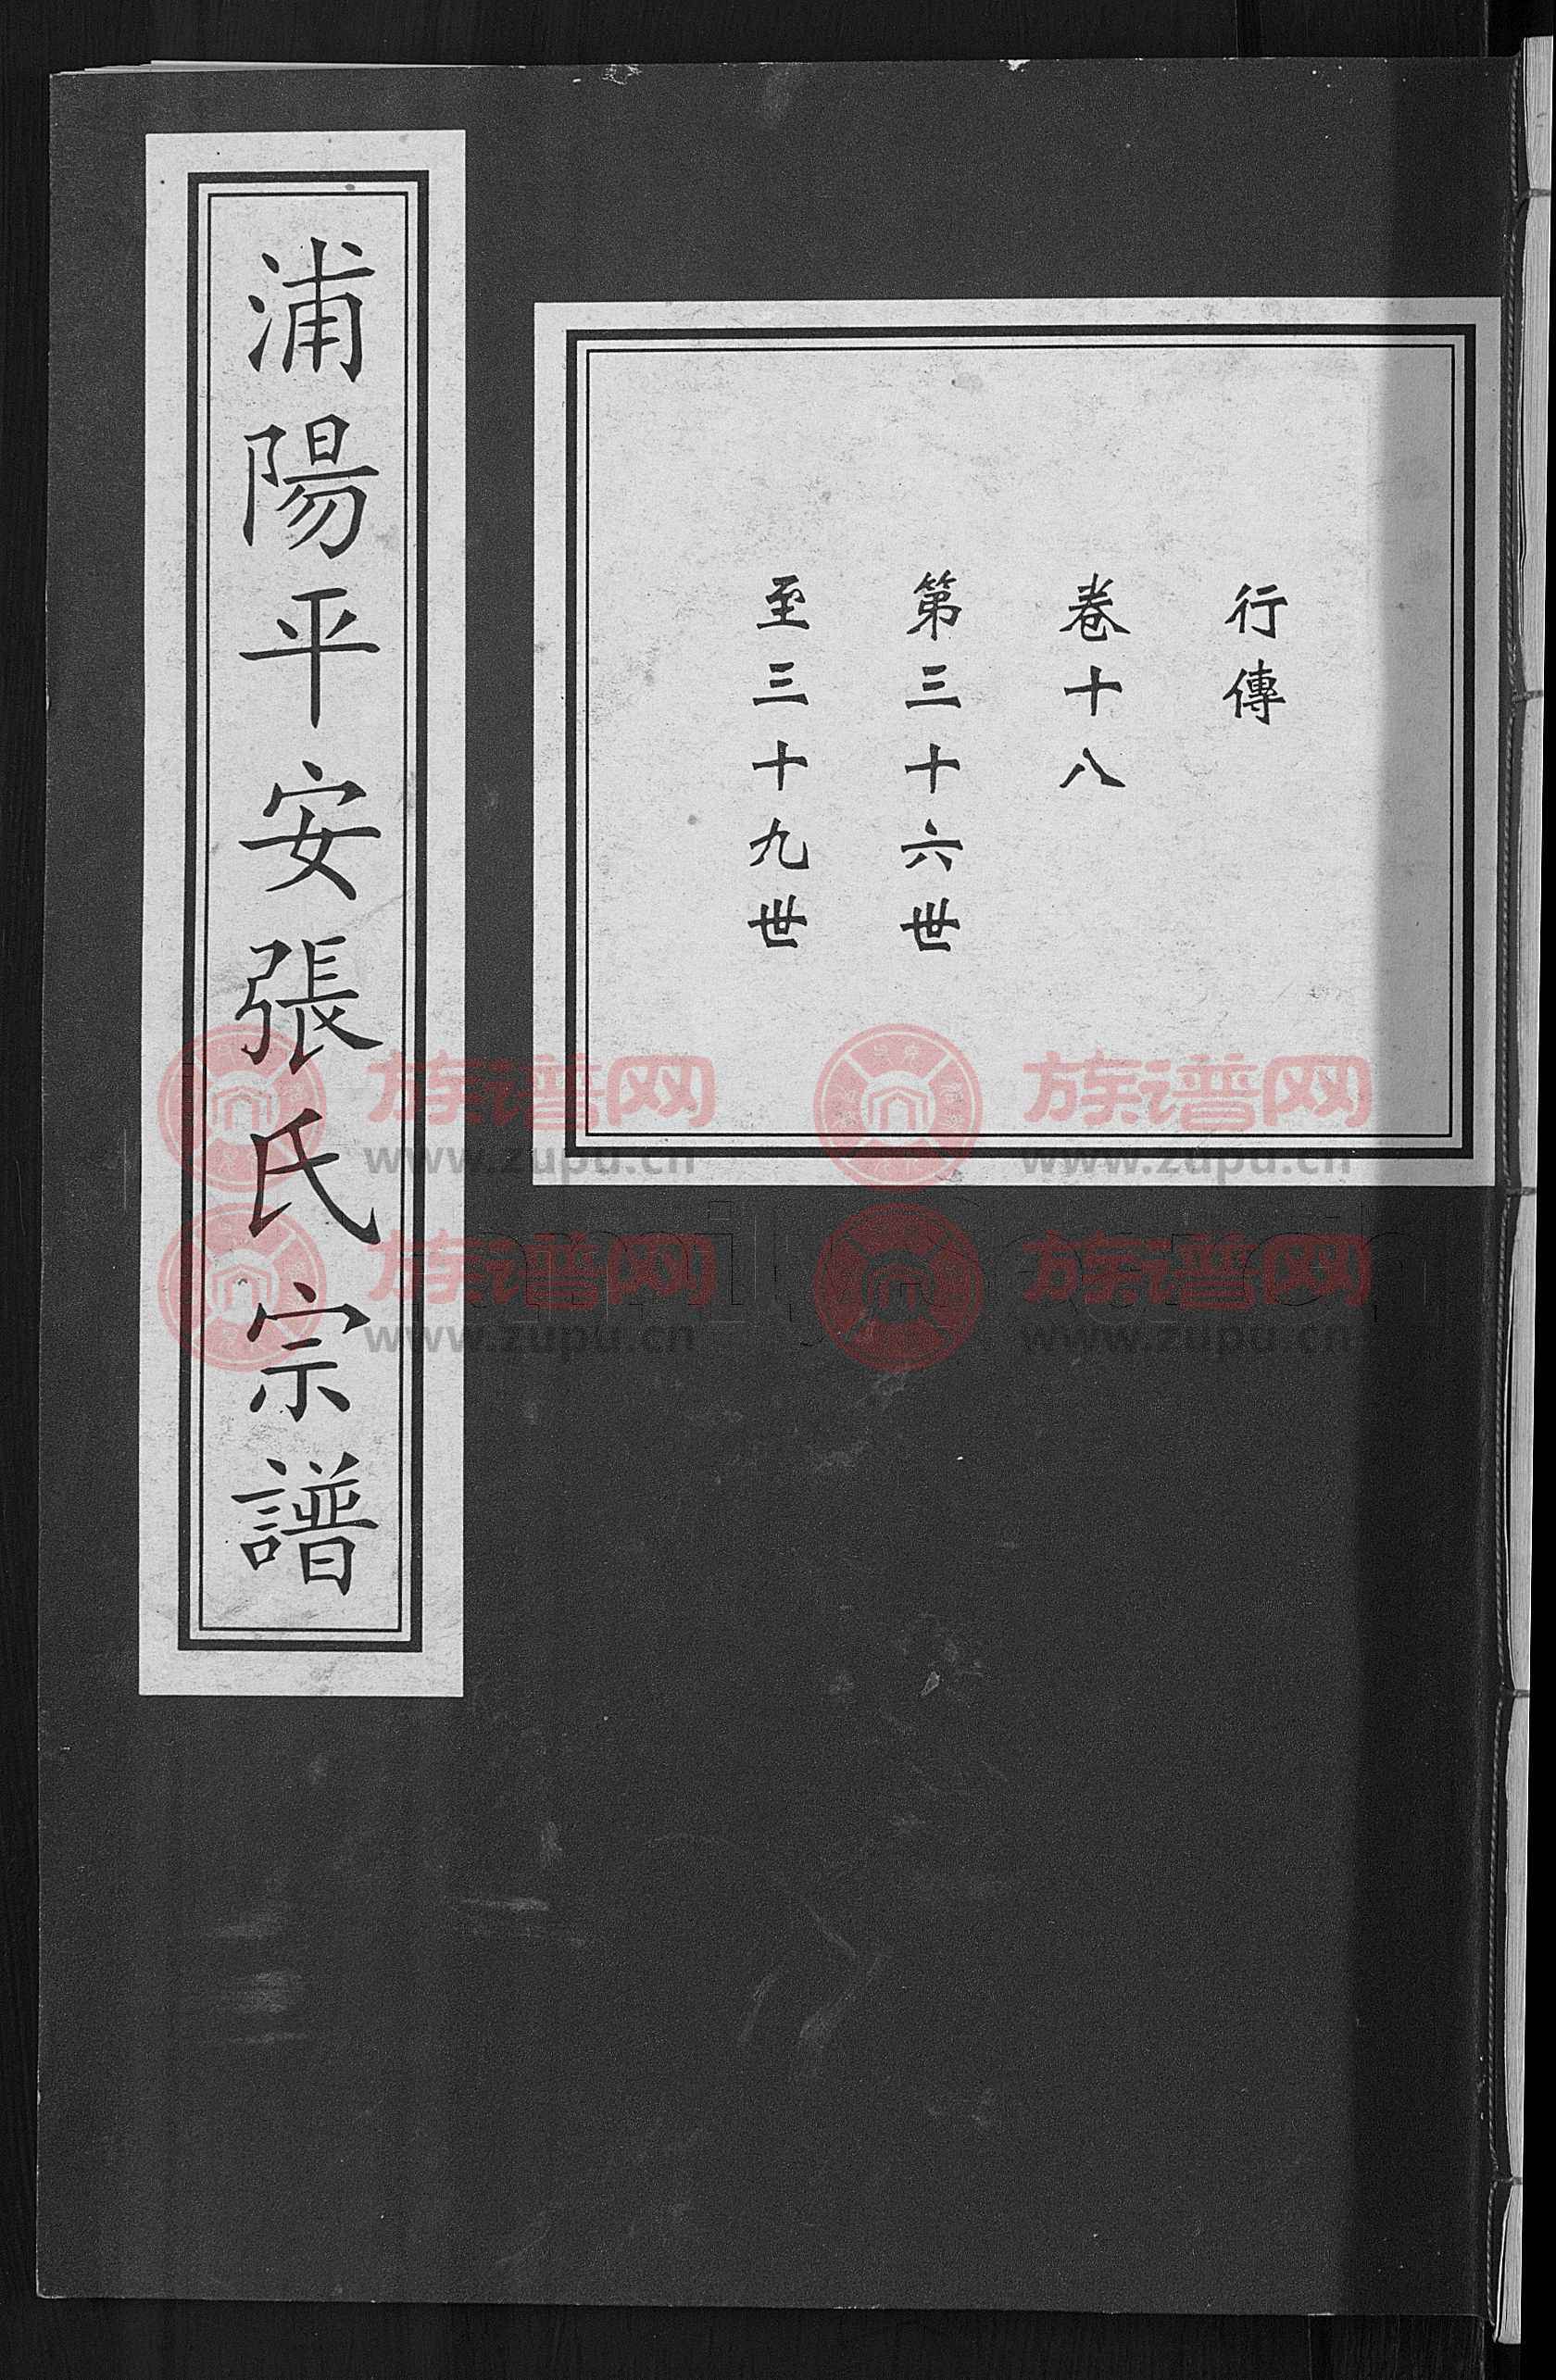 行傳
卷十八
第三十六世
至三十九世
浦陽平安張氏宗譜
族谱网
www.zupu.cn
族谱网
www.zupu.cn
族谱网
www.zupu.cn
族谱网
www.zupu.cn